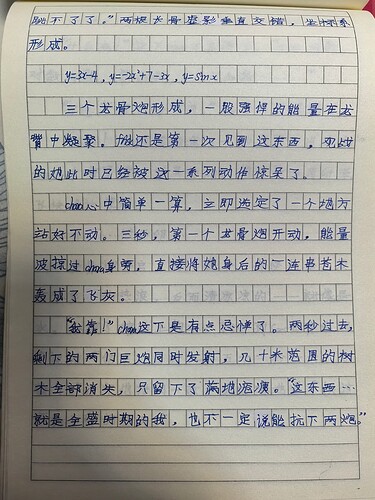 跑不了了。”两根龙骨虚影垂直交错，坐标系
形成。
y=3x-4，y=-2x²+7-3x，y=sinx
三个龙骨炮形成，一股强悍的能量在龙
背中凝聚。他还是第一次见到这东西，
的她此时已经被这一系列动作惊呆了。
chao心中简单一算，立即选定了一个地方
站好不动。三秒，第一个龙骨炮开动，能量
波掠过chao身旁，直接将她身后的一连串苦木
轰成了飞灰。
“我靠！”chao这下是有点忌惮了。两秒过去，
剩下的两门巨炮同时发射，几十米范围的树
木全部消失，只留下了满地泥演。“这东西…
就是全盛时期的我，也不一定说能抗下两炮。”